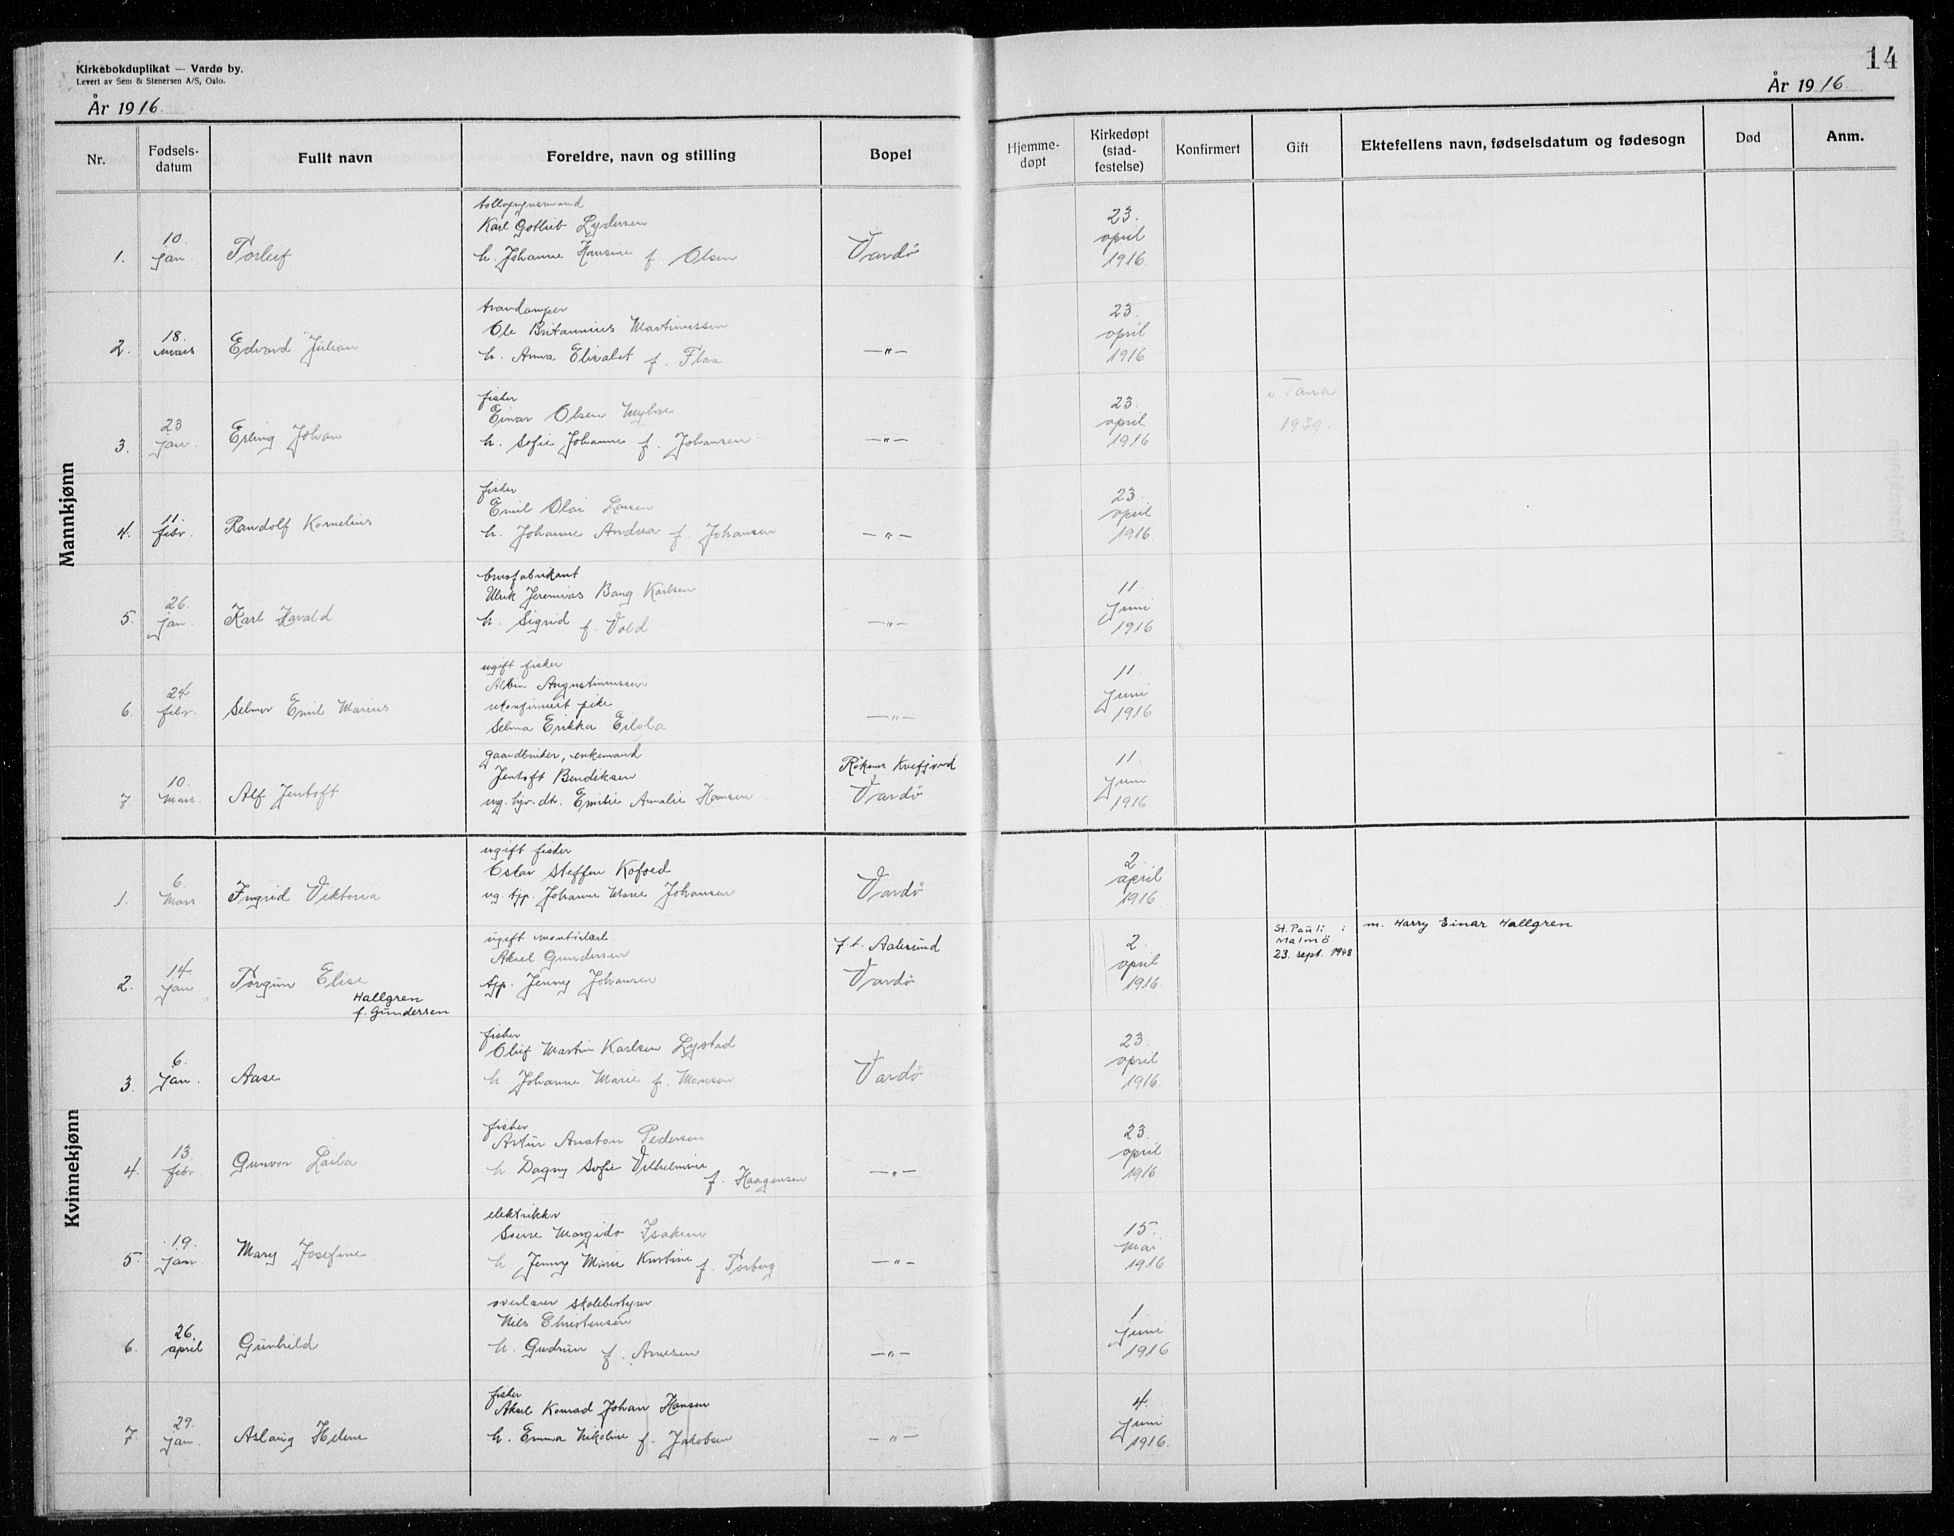 Kirkebokduplikat — Vardø by.
Levert av Sem & Stenersen A/S, Oslo.
År 1916
14
År 1916
Nr. Fødsels-datum Fullt navn Foreldre, navn og stilling Bopel Hjemme-døpt Kirkedøpt (stad-festelse) Konfirmert Gift Ektefellens navn, fødselsdatum og fødesogn Død Anm.
Mannkjønn
Karl Gotlieb Lydersen
1. 10. jan. Torleif h. Johanne Hansine f. Olsen Vardø 23. april 1916.
trandamper
Ole Britannius Martinussen
2. 18. mars Edvard Julian h. Anna Elisabet f. Flaa —"— 23. april 1916
fisker
Einar Olsen
3. 23 jan. Erling Johan h. Sofie Johanne f. Johansen —"— 23. april 1916 i Tana 1939.
fisker
Emil Olai Larsen
4. 11. febr. Randolf Kornelius h. Johanne Andrea f. Johansen —"— 23. april 1916.
brusfabrikant
Ulrik Jeremias Bang Karlsen
5. 26. jan. Karl Harald h. Sigrid f. Vold —"— 11. juni 1916
ugift fisker
Albin Augustinussen
ukonfirmert pike
6. 24 febr. Selmer Emil Marius Selma Erikka Eilola —"— 11. juni 1916
gaardbruker, enkemand
Jentoft Bendiksen Røkenes Kvefjord
7. 10. Mars. Alf Jentoft ug. hjv. dtr. Emilie Amalie Hansen Vardø 11. juni 1916
Kvinnekjønn
ugift fisker
Oskar Steffen Kofoed
1. 6. Mars Ingrid Viktoria ug. tjp. Johanne Marie Johansen Vardø 2. april 1916.
ugift
Aksel Gundersen f.t. Aalesund
2. 14 jan. Torgun Elise tjp. Jenny Johansen Vardø 2. april 1916. St. Pauli i Malmö 23. sept. 1948 m. Harry Einar Hallgren
Hallgren
f. Gundersen
fisker
Oluf Martin Karlsen Lystad
3. 6. jan. Aase h. Johanne Marie f. Monsen Vardø 23. april 1916.
fisker
Artur Anaton Pedersen
4. 13. febr Gunvor Laila h Dagny Sofie Vilhelmine f. Haagensen —"— 23. april 1916
elektriker
Sverre Margido Isaksen
5. 19. jan. Mary Josefine h Jenny Marie Kristine f. Torberg —"— 15. mai 1916
overlærer skolebestyrer
Nils Christensen
6. 26. april Gunhild h. Gudrun f. Arnesen —"— 1. juni 1916
fisker
Aksel Konrad Johan Hansen
7. 29. jan. Aslaug Helene h. Emma Nikoline f. Jakobsen —"— 4. juni 1916.